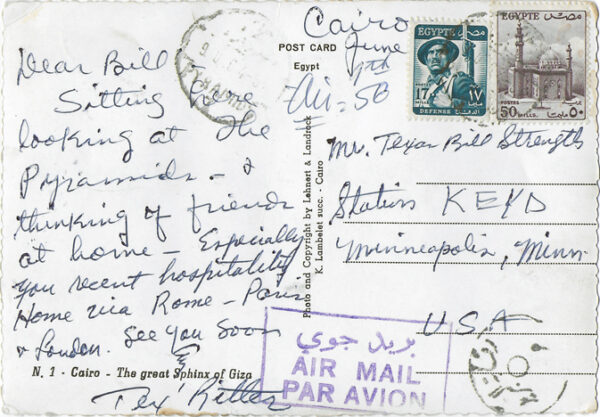 Dear Bill -
Sitting here
looking at the
Pyramids - &
thinking of friends
at home - Especially
you recent hospitality
Home via Rome - Paris
& London. See you soon
Tex Ritter
N. 1 - Cairo - The great Sphinx of Giza
POST CARD
Egypt
Cairo
June
9th
Air - 5B
Photo and Copyright by Lehnert & Landrock
K. Lambelet succ. - Cairo
EGYPTE مصر
17 MILLS ١٧
DEFENSE
EGYPTE مصر
POSTES
50 MILLS. مليمات ٥٠
Mr. Texas Bill Strength
Station KEYD
Minneapolis, Minn
USA
بريد جوي
AIR MAIL
PAR AVION